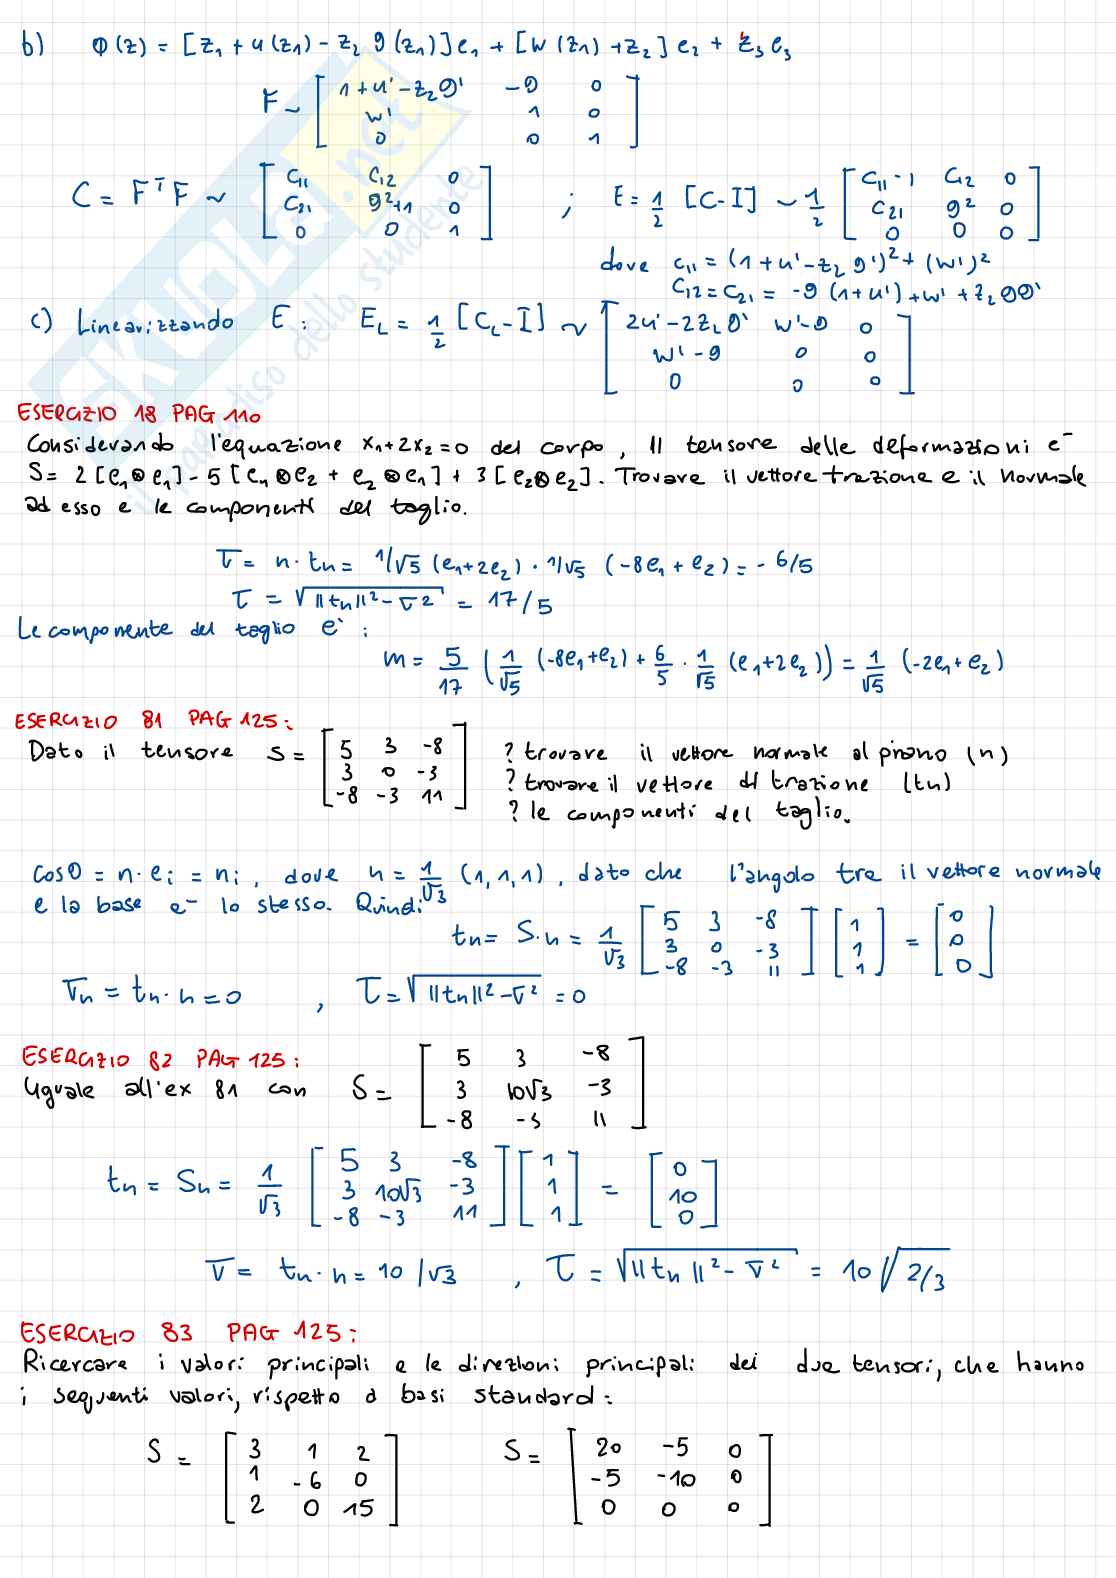 b) Φ(z) = [z₁ + u(z₁) - z₂ θ(z₁)]e₁ + [w(z₁) + z₂]e₂ + z₃e₃
F ~ [ 1+u'-z₂θ' -θ 0
w' 1 0
0 0 1 ]
C = FᵀF ~ [ C₁₁ C₁₂ 0 ; E = 1/2 [C-I] ~ 1/2 [ C₁₁-1 C₁₂ 0
C₂₁ θ²+1 0 C₂₁ θ² 0
0 0 1 ] 0 0 0 ]
dove C₁₁ = (1+u'-z₂θ')² + (w')²
C₁₂ = C₂₁ = -θ(1+u') + w' + z₂θθ'
c) Linearizzando E: E_L = 1/2 [C_L-I] ~ [ 2u'-2z₂θ' w'-θ 0
w'-θ 0 0
0 0 0 ]
ESERCIZIO 18 PAG 110
Considerando l'equazione x₁+2x₂=0 del corpo, Il tensore delle deformazioni e-
S= 2[e₁⊗e₁] - 5[e₁⊗e₂ + e₂⊗e₁] + 3[e₂⊗e₂]. Trovare il vettore trazione e il normale
ad esso e le componenti del taglio.
σ = n·tn = 1/√5 (e₁+2e₂) · 1/√5 (-8e₁+e₂) = -6/5
τ = √(||tn||²-σ²) = 17/5
Le componente del taglio e` :
m = 5/17 (1/√5 (-8e₁+e₂) + 6/5 · 1/√5 (e₁+2e₂)) = 1/√5 (-2e₁+e₂)
ESERCIZIO 81 PAG 125:
Dato il tensore S = [ 5 3 -8 ? trovare il vettore normale al piano (n)
3 0 -3 ? trovare il vettore di trazione (tn)
-8 -3 11 ] ? le componenti del taglio.
cosθ = n·eᵢ = nᵢ, dove n = 1/√3 (1,1,1), dato che l'angolo tra il vettore normale
e la base e- lo stesso. Quindi
tn = S·n = 1/√3 [ 5 3 -8 ] [ 1 ] = [ 0 ]
3 0 -3 1 0
-8 -3 11 1 0
σn = tn·n = 0 , τ = √(||tn||²-σ²) = 0
ESERCIZIO 82 PAG 125:
Uguale all'ex 81 con S = [ 5 3 -8
3 10√3 -3
-8 -3 11 ]
tn = Sn = 1/√3 [ 5 3 -8 ] [ 1 ] = [ 0 ]
3 10√3 -3 1 10
-8 -3 11 1 0
σ = tn·n = 10/√3 , τ = √(||tn||²-σ²) = 10√(2/3)
ESERCIZIO 83 PAG 125:
Ricercare i valori principali e le direzioni principali dei due tensori, che hanno
i seguenti valori, rispetto a basi standard:
S = [ 3 1 2 S = [ 20 -5 0
1 -6 0 -5 -10 0
2 0 15 ] 0 0 0 ]
SKUOLA.net
il paradiso dello studente